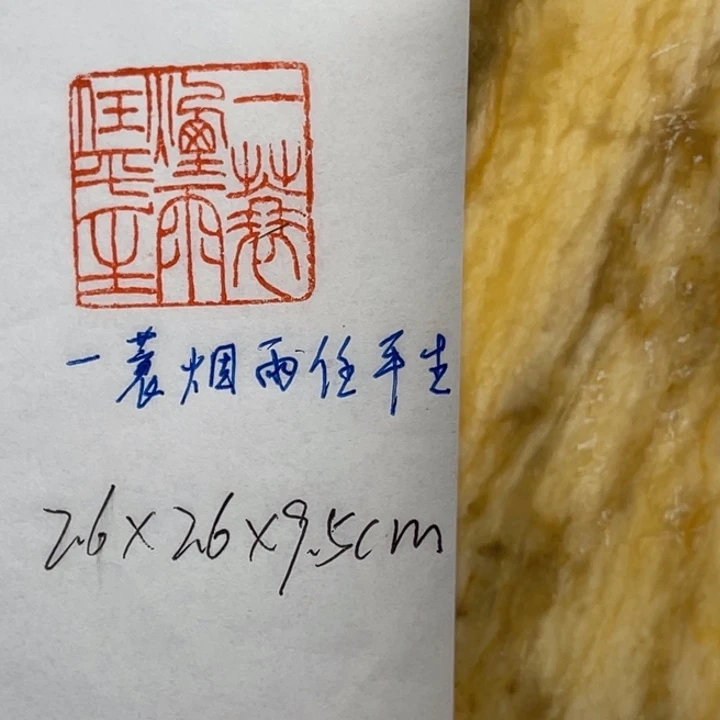 一蓑
煙雨
任平生
一蓑烟雨任平生
2.6×2.6×9.5cm